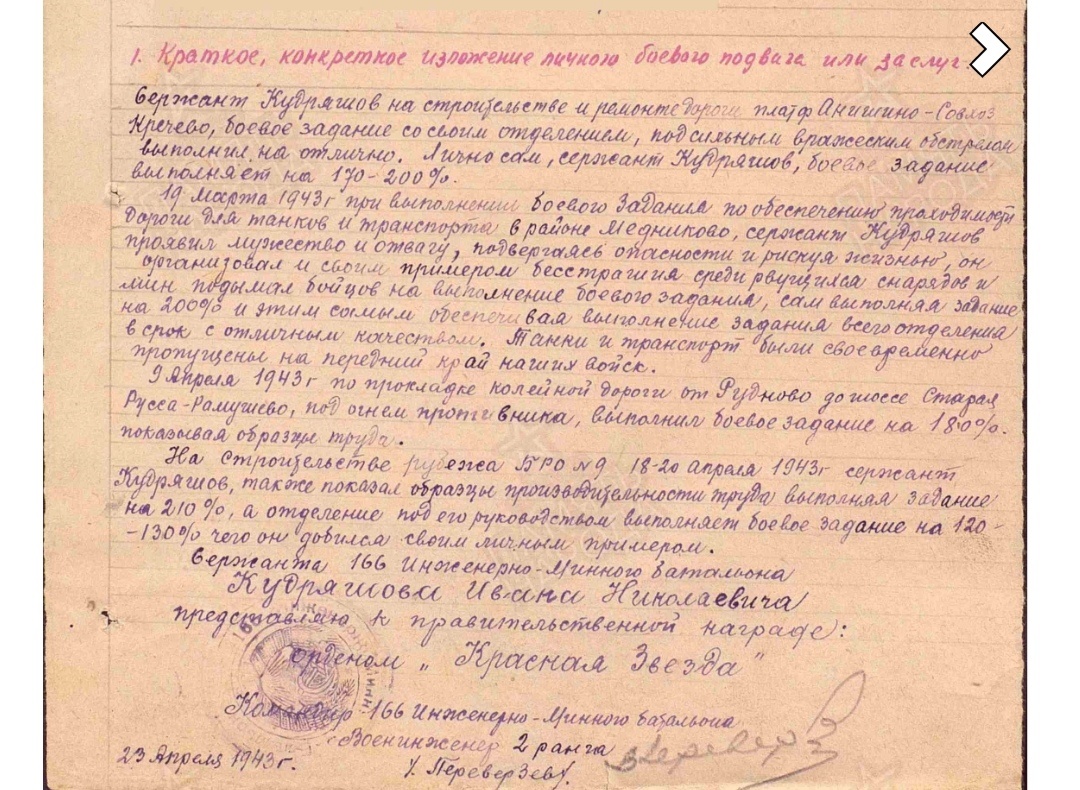 1. Краткое, конкретное изложение личного боевого подвига или заслуг.
Сержант Кудряшов на строительстве и ремонте дороги платф Анишино-Совхоз
Кречево, боевое задание со своим отделением, под сильным вражеским обстрелом
выполнил на отлично. Лично сам, сержант Кудряшов, боевое задание
выполняет на 170-200%.
19 Марта 1943г при выполнении боевого задания по обеспечению проходимости
дороги для танков и транспорта в районе Медниково, сержант Кудряшов
проявил мужество и отвагу, подвергаясь опасности и рискуя жизнью, он
организовал и своим примером бесстрашия среди рвущихся снарядов и
мин подымал бойцов на выполнение боевого задания, сам выполняя задание
на 200% и этим самым обеспечивая выполнение задания всего отделения
в срок с отличным качеством. Танки и транспорт были своевременно
пропущены на передний край наших войск.
9 Апреля 1943г по прокладке колейной дороги от Рудново до шоссе Старая
Русса-Рамушево, под огнем противника, выполнил боевое задание на 180%.
показывая образцы труда.
На строительстве рубежа БРО №9 18-20 апреля 1943г сержант
Кудряшов, также показал образцы производительности труда выполняя задание
на 210%, а отделение под его руководством выполняет боевое задание на 120-
-130% чего он добился своим личным примером.
Сержанта 166 Инженерно-Минного батальона
Кудряшова Ивана Николаевича
представляю к правительственной награде:
орденом „Красная Звезда"
Командир 166 Инженерно-Минного батальона
Военинженер 2 ранга
23 Апреля 1943г.
/. Переверзев/.